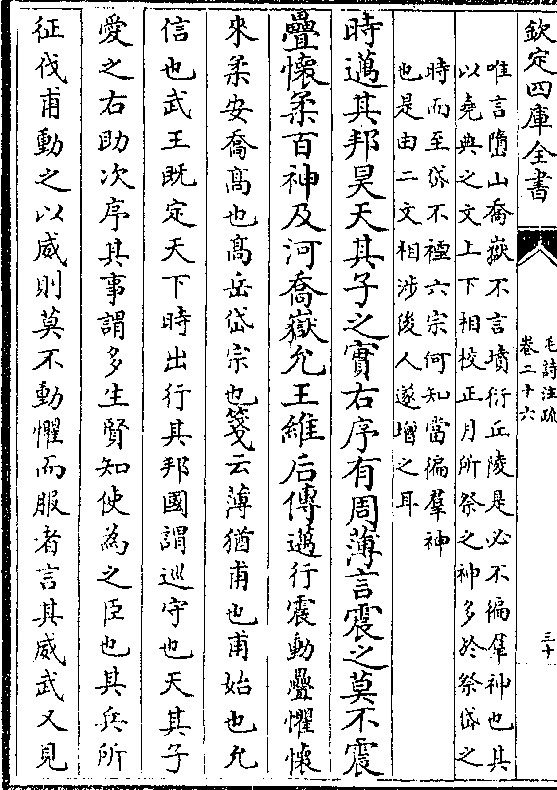 欽定四庫全書
毛詩注疏
卷二十六
三十
唯言墮山喬嶽不言墳衍丘陵是必不徧羣神也其
以堯典之文上下相校正月所祭之神多於祭岱之
時而至岱不禋六宗何知當徧羣神
也是由二文相涉後人遂增之耳
時邁其邦昊天其子之實右序有周薄言震之莫不震
疊懷柔百神及河喬嶽允王維后傳邁行震動疊懼懷
來柔安喬高也高岳岱宗也箋云薄猶甫也甫始也允
信也武王既定天下時出行其邦國謂巡守也天其子
愛之右助次序其事謂多生賢知使為之臣也其兵所
征伐甫動之以威則莫不動懼而服者言其威武又見